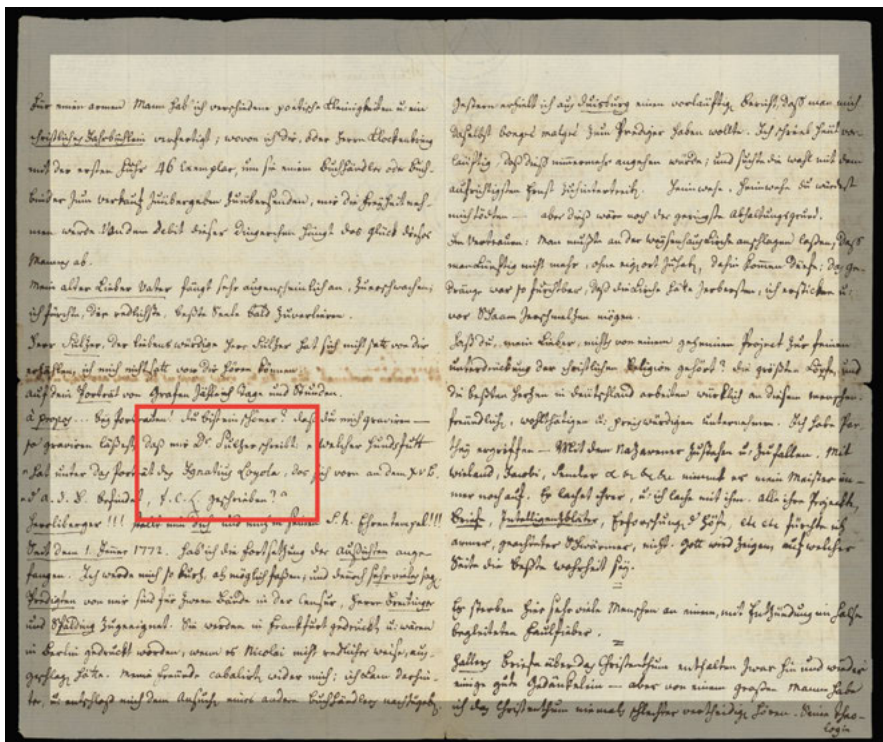 Für einen armen Mann hab' ich verschiedene poetische Kleinigkeiten u: ein
christliches Jahrbüchlein verfertigt; wovon ich dir, oder Herrn Klockenbring
mit der ersten Fuhr 46 Exemplar, um sie einem Buchhändler oder Buch-
binder zum verkauf zu übergeben zu übersenden, mir die Freyheit neh-
men werde. Von dem Debit dieser Dingerchen hängt das Glück dieses
Mannes ab.
Mein alter Lieber Vater fängt sehr augenscheinlich an, zu erschwachen;
ich fürchte, die redlichste, beßte Seele bald zu verlieren.
Herr Sulzer, der liebenswürdige Herr Sulzer hat sich nicht satt von dir
erzählen, ich mich nicht satt von dir hören können.
auf dein Porträt von Grafen zähl' ich Tage und Stunden.
à propos ... bey Porträten! du bist ein schöner? daß du mich graviren —
so graviren läßest, daß mir Dr. Sulzer schreibt: „welcher Hundsfutt
„hat unter das Porträt des Ignatius Loyola, das sich vorn an dem XVI B.
„d' a. d. B. befindet, J. C. L. geschrieben?"
Herrliberger!!! mich in seinen S. h. Ehrentempel!!!
Seit dem 1. Jenner 1772. hab ich die fortsetzung der Aussichten ange-
fangen. Ich werde mich so kurz, als möglich faßen; und durch sehr vieles
Predigten von mir sind für zween Bände in der Censur, Herrn Breitinger
und Spalding zugeeignet. Sie werden in Frankfurt gedruckt u: wären
in Berlin gedruckt worden, wenn es Nicolai nicht redlicher weise, aus-
geschlagen hätte. Meine freunde cabalirten wider mich; ich kam dahin-
ter, u: entschloß mich dem Ansuchen eines andern Buchhändlers
Gestern erhielt ich aus Duisburg einen vorläuftigen Bericht, daß man mich
daselbst bongré malgré zum Prediger haben wollte. Ich schrieb heut vor-
läuftig, daß dieß nimmermehr angehen würde; und suchte die wahl mit dem
aufrichtigsten Ernst zu hintertreiben. Heimwehe, Heimwehe du würdest
mich tödten — aber dieß wär noch der geringste Abhaltungsgrund.
Im Vertrauen: Man mußte an der Waysenhauskirche anschlagen laßen, daß
man künftig nicht mehr, ohne eignen ort zuhaben, dahin kommen dürfe; das Ge-
dränge war so furchtbar, daß die Kirche hätte zerbersten, ich ersticken u:
vor Schaam zerschmelzen mögen.
Hast du, mein Lieber, nichts von einem geheimen Project zur feinen
unterdrückung der christlichen Religion gehört? die größten Köpfe, und
die beßten Herzen in Deutschland arbeiten würklich an diesem menschen-
freundlichen, wohlthätigen u: preiswürdigen unternehmen. Ich habe Par-
they ergriffen — Mit dem Nazarener zu stehen u: zufallen. Mit
Wieland, Jacobi, Semler nimmt es mein Meister im-
mer noch auf. Er lachet ihrer, u: ich lache mit ihm. alle ihre Projekte,
Briefe, Intelligenzblätter, Erforschung d' Höfe, etc etc fürchte ich
armer, geachteter Schwärmer, nicht. Gott wird zeigen, auf welcher
Seite die beßte wahrheit sey.
Es sterben hier sehr viele Menschen an einem, mit Entzündung im Halse
begleiteten Faulfieber.
Hallers Briefe über das Christenthum enthalten zwar hin und wieder
einige gute Gedänkelein — aber von einem großen Manne habe
ich das Christenthum niemals schlechter vertheidigen hören. Seine Theo-
logie